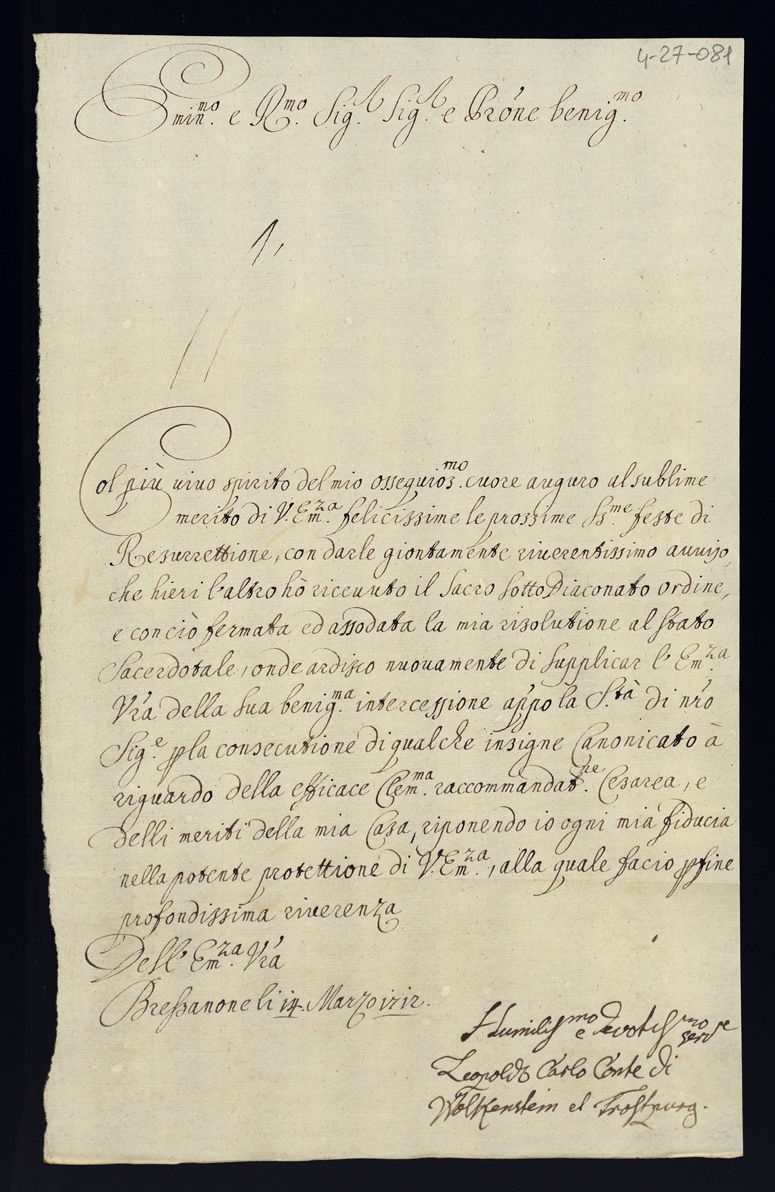 4-27-081
Emin.mo e R.mo Sig.r Sig.r e Prōne benig.mo
Col più vivo spirito del mio ossequios.mo cuore auguro al sublime
merito di V. Em.za felicissime le prossime Ss.me feste di
Resurrettione, con darle giontamente riverentissimo avviso,
che hieri l'altro hò ricevuto il Sacro Sotto Diaconato ordine,
e con ciò fermata ed assodata la mia risolutione al stato
Sacerdotale, onde ardisco nuovamente di supplicar l'Em.za
Vr̄a della sua benig.ma intercessione appo la S.tà di nr̄o
Sig.e ꝑ la consecutione di qualche insigne Canonicato à
riguardo della efficace Clem.ma raccommandat.ne Cesarea, e
delli meriti della mia Casa, riponendo io ogni mia fiducia
nella potente protettione di V. Em.za, alla quale facio ꝑ fine
profondissima riverenza
Dell'Em.za Vr̄a
Bressanone li 14. Marzo 1712.
Humiliss.mo e Devotiss.mo serv.re
Leopoldo Carlo Conte di
Wolkenstein et Trostpurg.